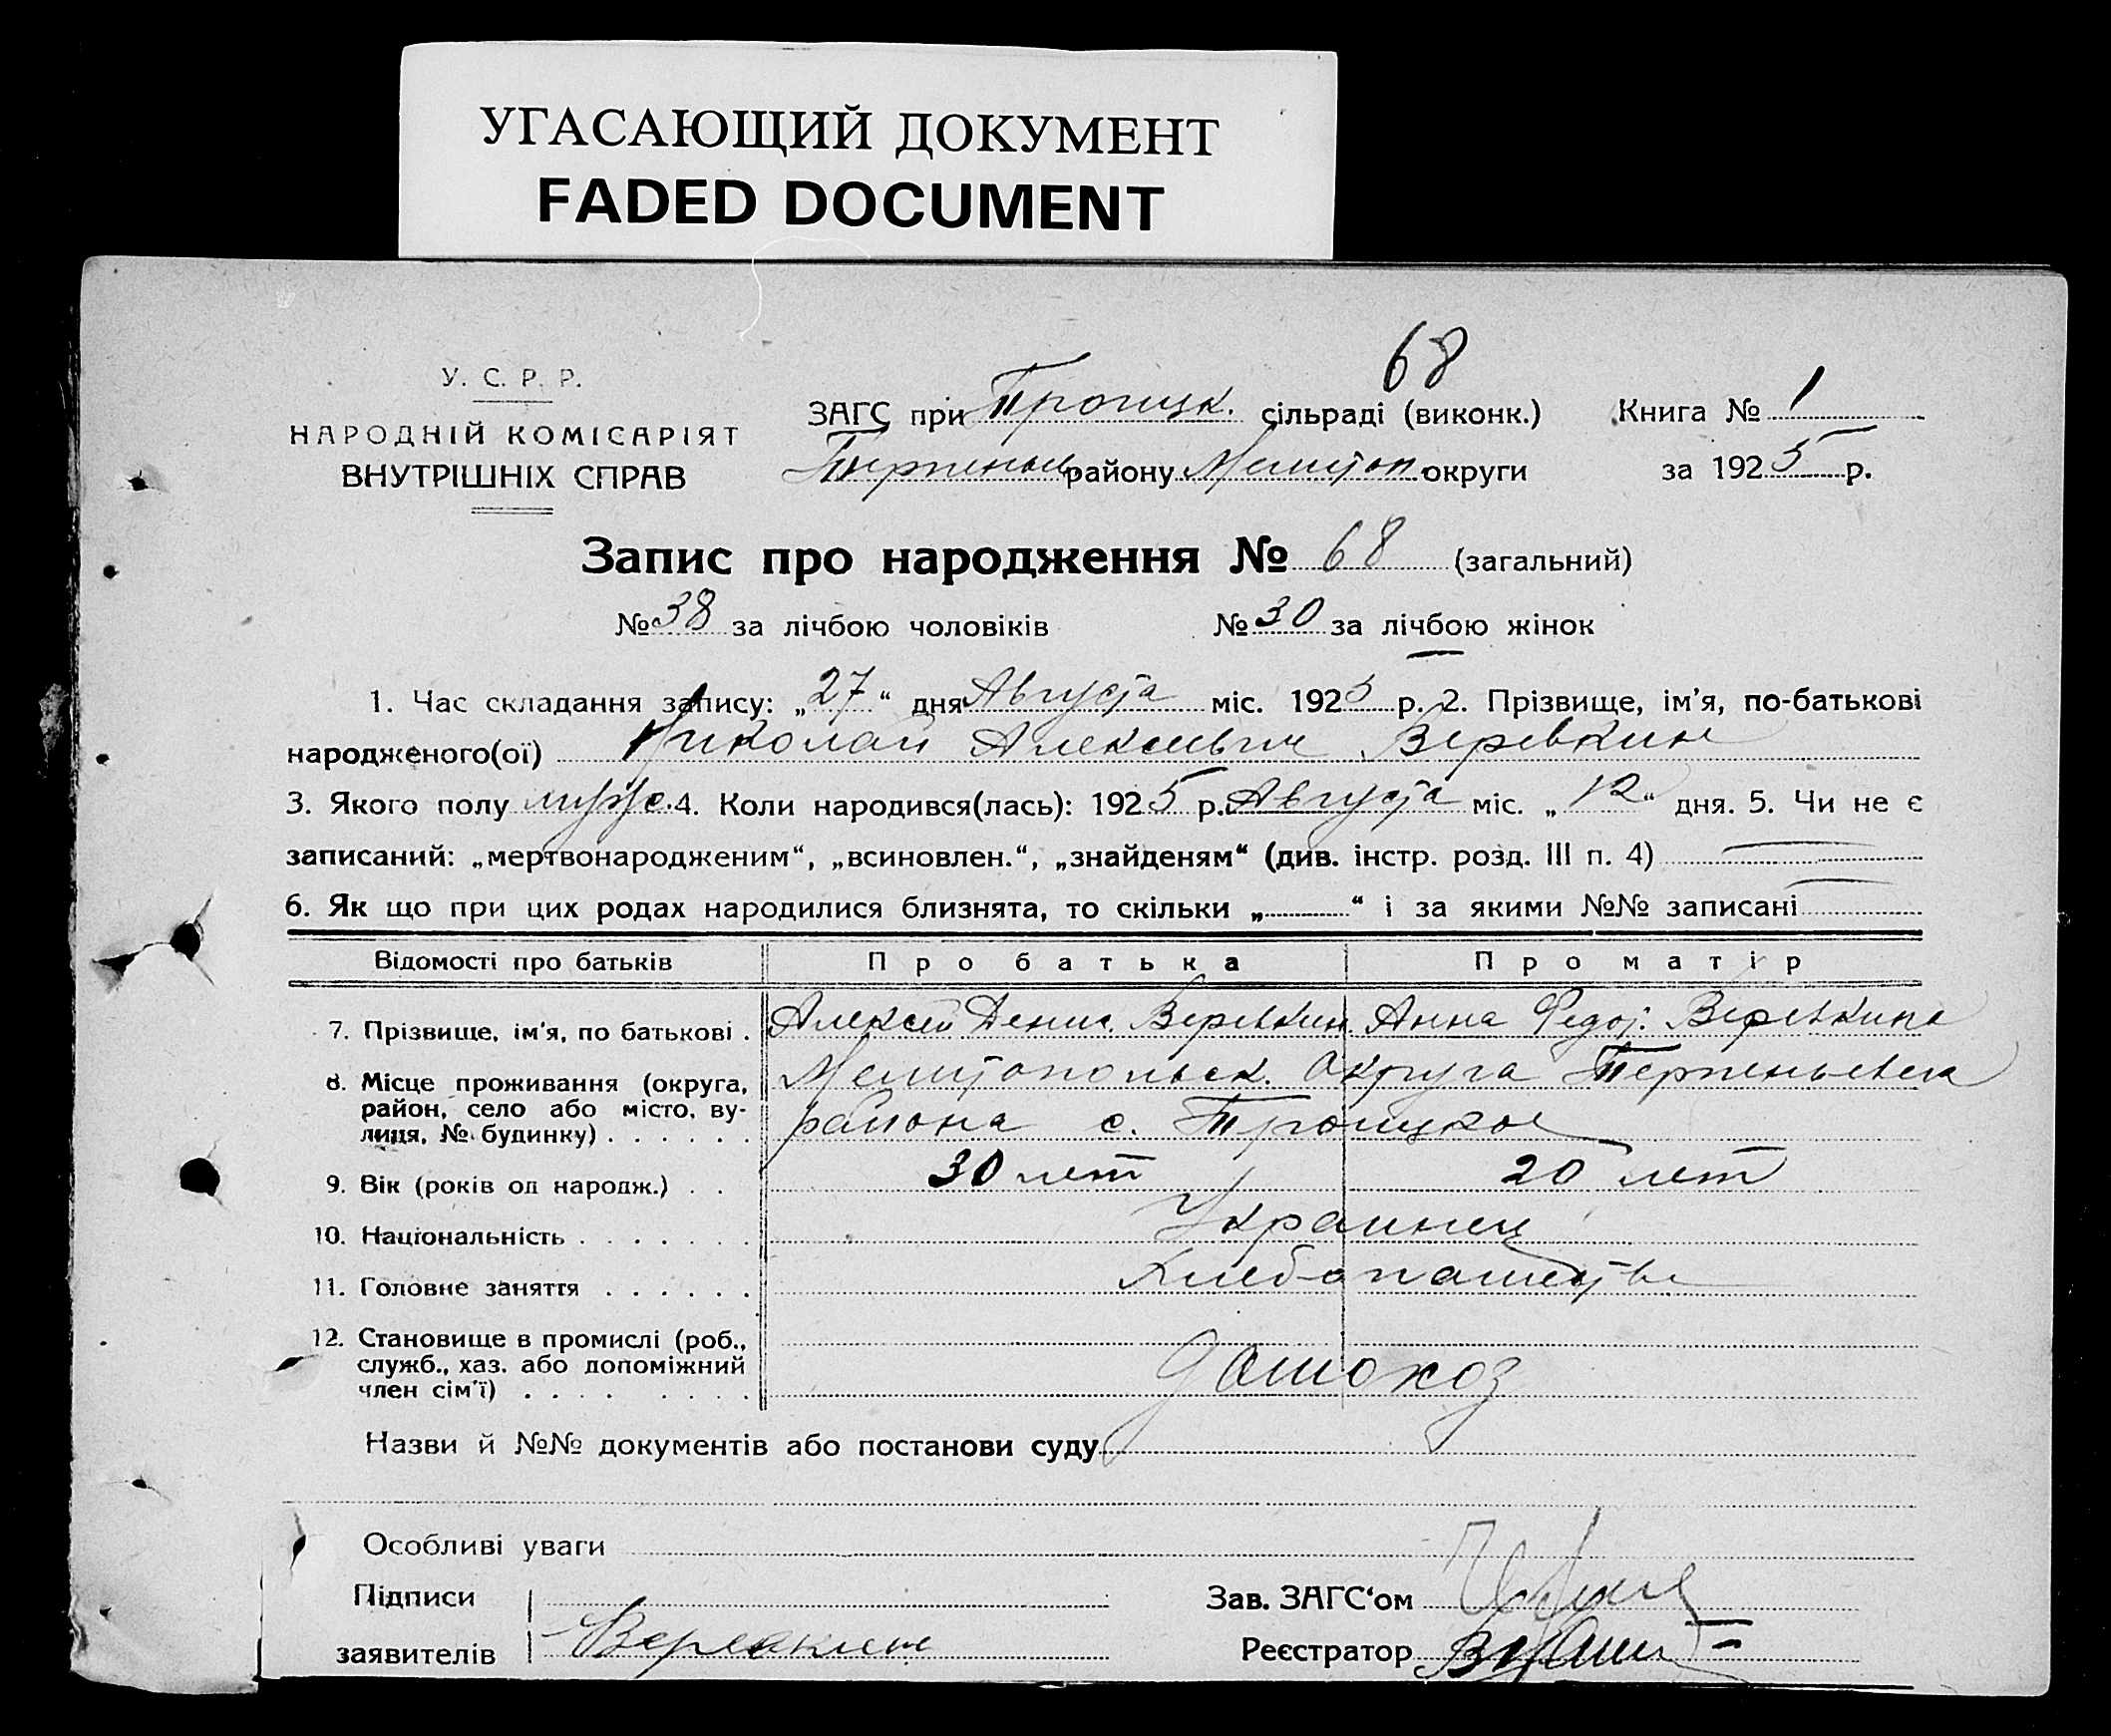 УГАСАЮЩИЙ ДОКУМЕНТ
FADED DOCUMENT
68
У. С. Р. Р.
НАРОДНІЙ КОМІСАРІЯТ
ВНУТРІШНІХ СПРАВ
ЗАГС при Троицк. сільраді (виконк.)
Терпеньев району Мелитоп. округи
Книга № 1
за 1925 р.
Запис про народження № 68 (загальний)
№ 38 за лічбою чоловіків № 30 за лічбою жінок
1. Час складання запису: „27“ дня Августа міс. 1925 р. 2. Прізвище, ім'я, по-батькові
народженого(ої) Николай Алексеевич Веревкин
3. Якого полу мужс. 4. Коли народився(лась): 1925 р. Августа міс. „12“ дня. 5. Чи не є
записаний: „мертвонародженим“, „всиновлен.“, „знайденям“ (див. інстр. розд. III п. 4)
6. Як що при цих родах народилися близнята, то скільки „ “ і за якими №№ записані
Відомості про батьків Про батька Про матір
7. Прізвище, ім'я, по батькові . Алексей Денис. Веревкин Анна Федот. Веревкина
8. Місце проживання (округа, Мелитопольск. Округа Терпеньевск
район, село або місто, ву-
лиця, № будинку) . . . . . . района с. Троицкое
9. Вік (років од народж.) . . 30 лет 20 лет
10. Національність . . . . . . . Украинец
11. Головне заняття . . . . . . Хлебопашество
12. Становище в промислі (роб.,
служб., хаз. або допоміжний
член сім'ї) . . . . . . . . домохоз
Назви й №№ документів або постанови суду
Особливі уваги
Підписи
заявителів Веревкин
Зав. ЗАГС'ом
Реєстратор